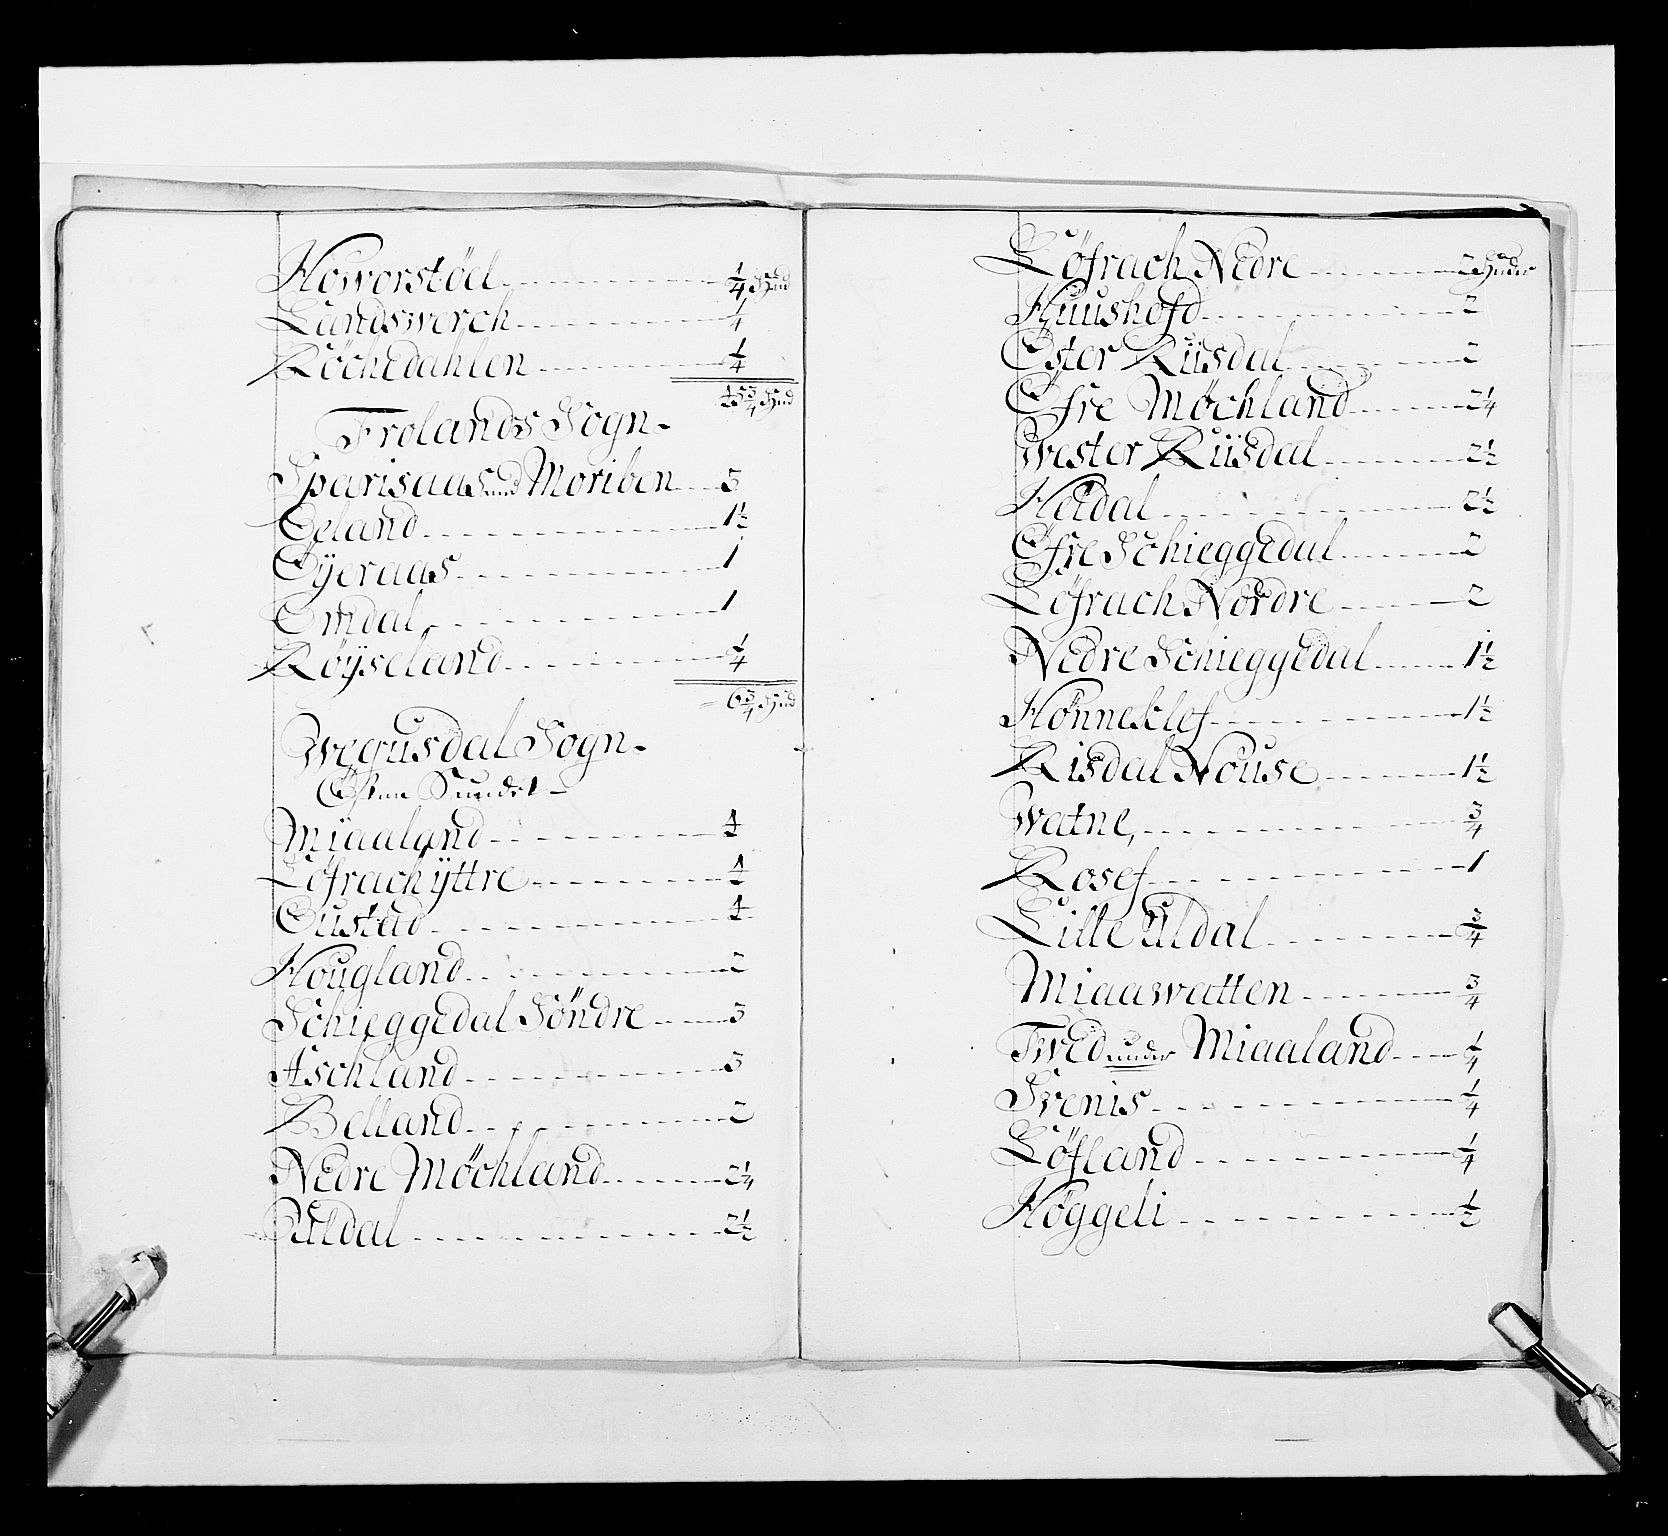 Howorstöel ¼ Hud
Landswerch ¼
Röchedahlen ¼
453¾ Hud
Frolands Sogn.
Sparisaas und Moriben 3
Øeland 1½
Øÿeraas 1
Omdal 1
Röÿseland ¼
6¾ Hud
Wegusdal Sogn.
Östen Sundet
Miaaland
Löfrach ÿttre
Oustad
Hougland 2
Schieggedal Söndre 3
Aschland 3
Belland 2
Nedre Möchland 2¼
Uldal 2½
Löfrach Nedre 2 Huder
Huushofd 2
Öster Riisdal 2
Öfre Möchland 2¼
Wester Riisdal 2½
Heidal 2½
Öfre Schieggedal 2
Löfrach Nordre 2
Nedre Schieggedal 1½
Hönneklef 1½
Risdal Nouse 1½
Watne, ¾
Rosef 1
Lille Uldal ¾
Miaawatten ¾
Twed under Miaaland ¼
Svenis ¼
Löfland ¼
Höggeli ½